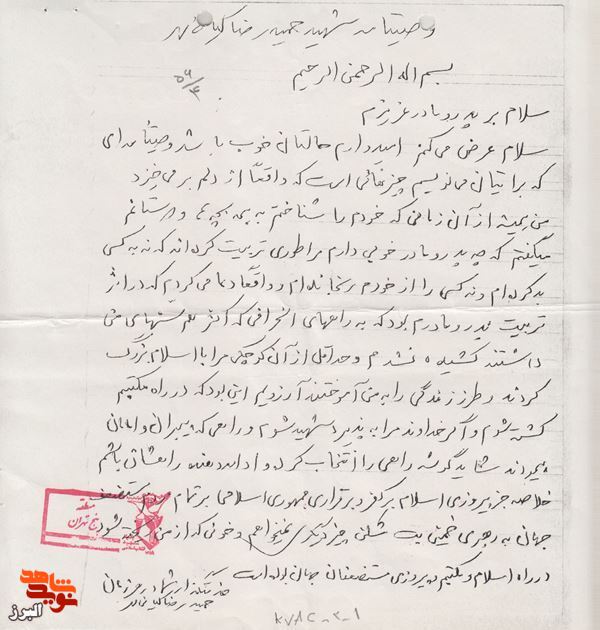 وصیتنامه شهید حمیدرضا کیانی مهر
بسم اله الرحمن الرحیم
۵۹/۴
سلام بر پدر و مادر عزیزم
سلام عرض می‌کنم امیدوارم حالتان خوب باشد وصیتنامه‌ای
که براتیان می‌نویسم چیزهائی است که واقعاً از دلم برمی‌خیزد
من همیشه از آن زمانی که خودم را شناختم به همه بچه‌ها و دوستانم
میگفتم که چه پدر و مادر خوبی دارم مرا طوری تربیت کرده‌اند که نه به کسی
بد کرده‌ام و نه کسی را از خودم رنجانده‌ام و واقعاً دعا می‌کردم که در اثر
تربیت پدر و مادرم بود که به راههای انحرافی که اکثر هم سنهای من
داشتند کشیده نشدم و حداقل از آن کوچکی مرا با اسلام بزرگ
کردند و طرز زندگی را به من آموختند آرزویم این بود که در راه مکتبم
کشته شوم و اگر خداوند مرا بپذیرد شهید شوم و راهی که پیمبران و امامان
پیمودند شاید گوشه راهی را انتخاب کرده و ادامه دهنده راهشان باشم
خلاصه جز پیروزی اسلام بر کفر و برقراری جمهوری اسلامی بر تمام مستضعف
جهان به رهبری خمینی بت شکن چیز دیگری نمیخواهم و خونی که از من ریخته شود
در راه اسلام و مکتبم و پیروزی مستضعفان جهان بوده است
خدمتگذار شما در هر زمان
حمیدرضا کیانی مهر
منطقه
پنج تهران
شاهد
نوید
البرز